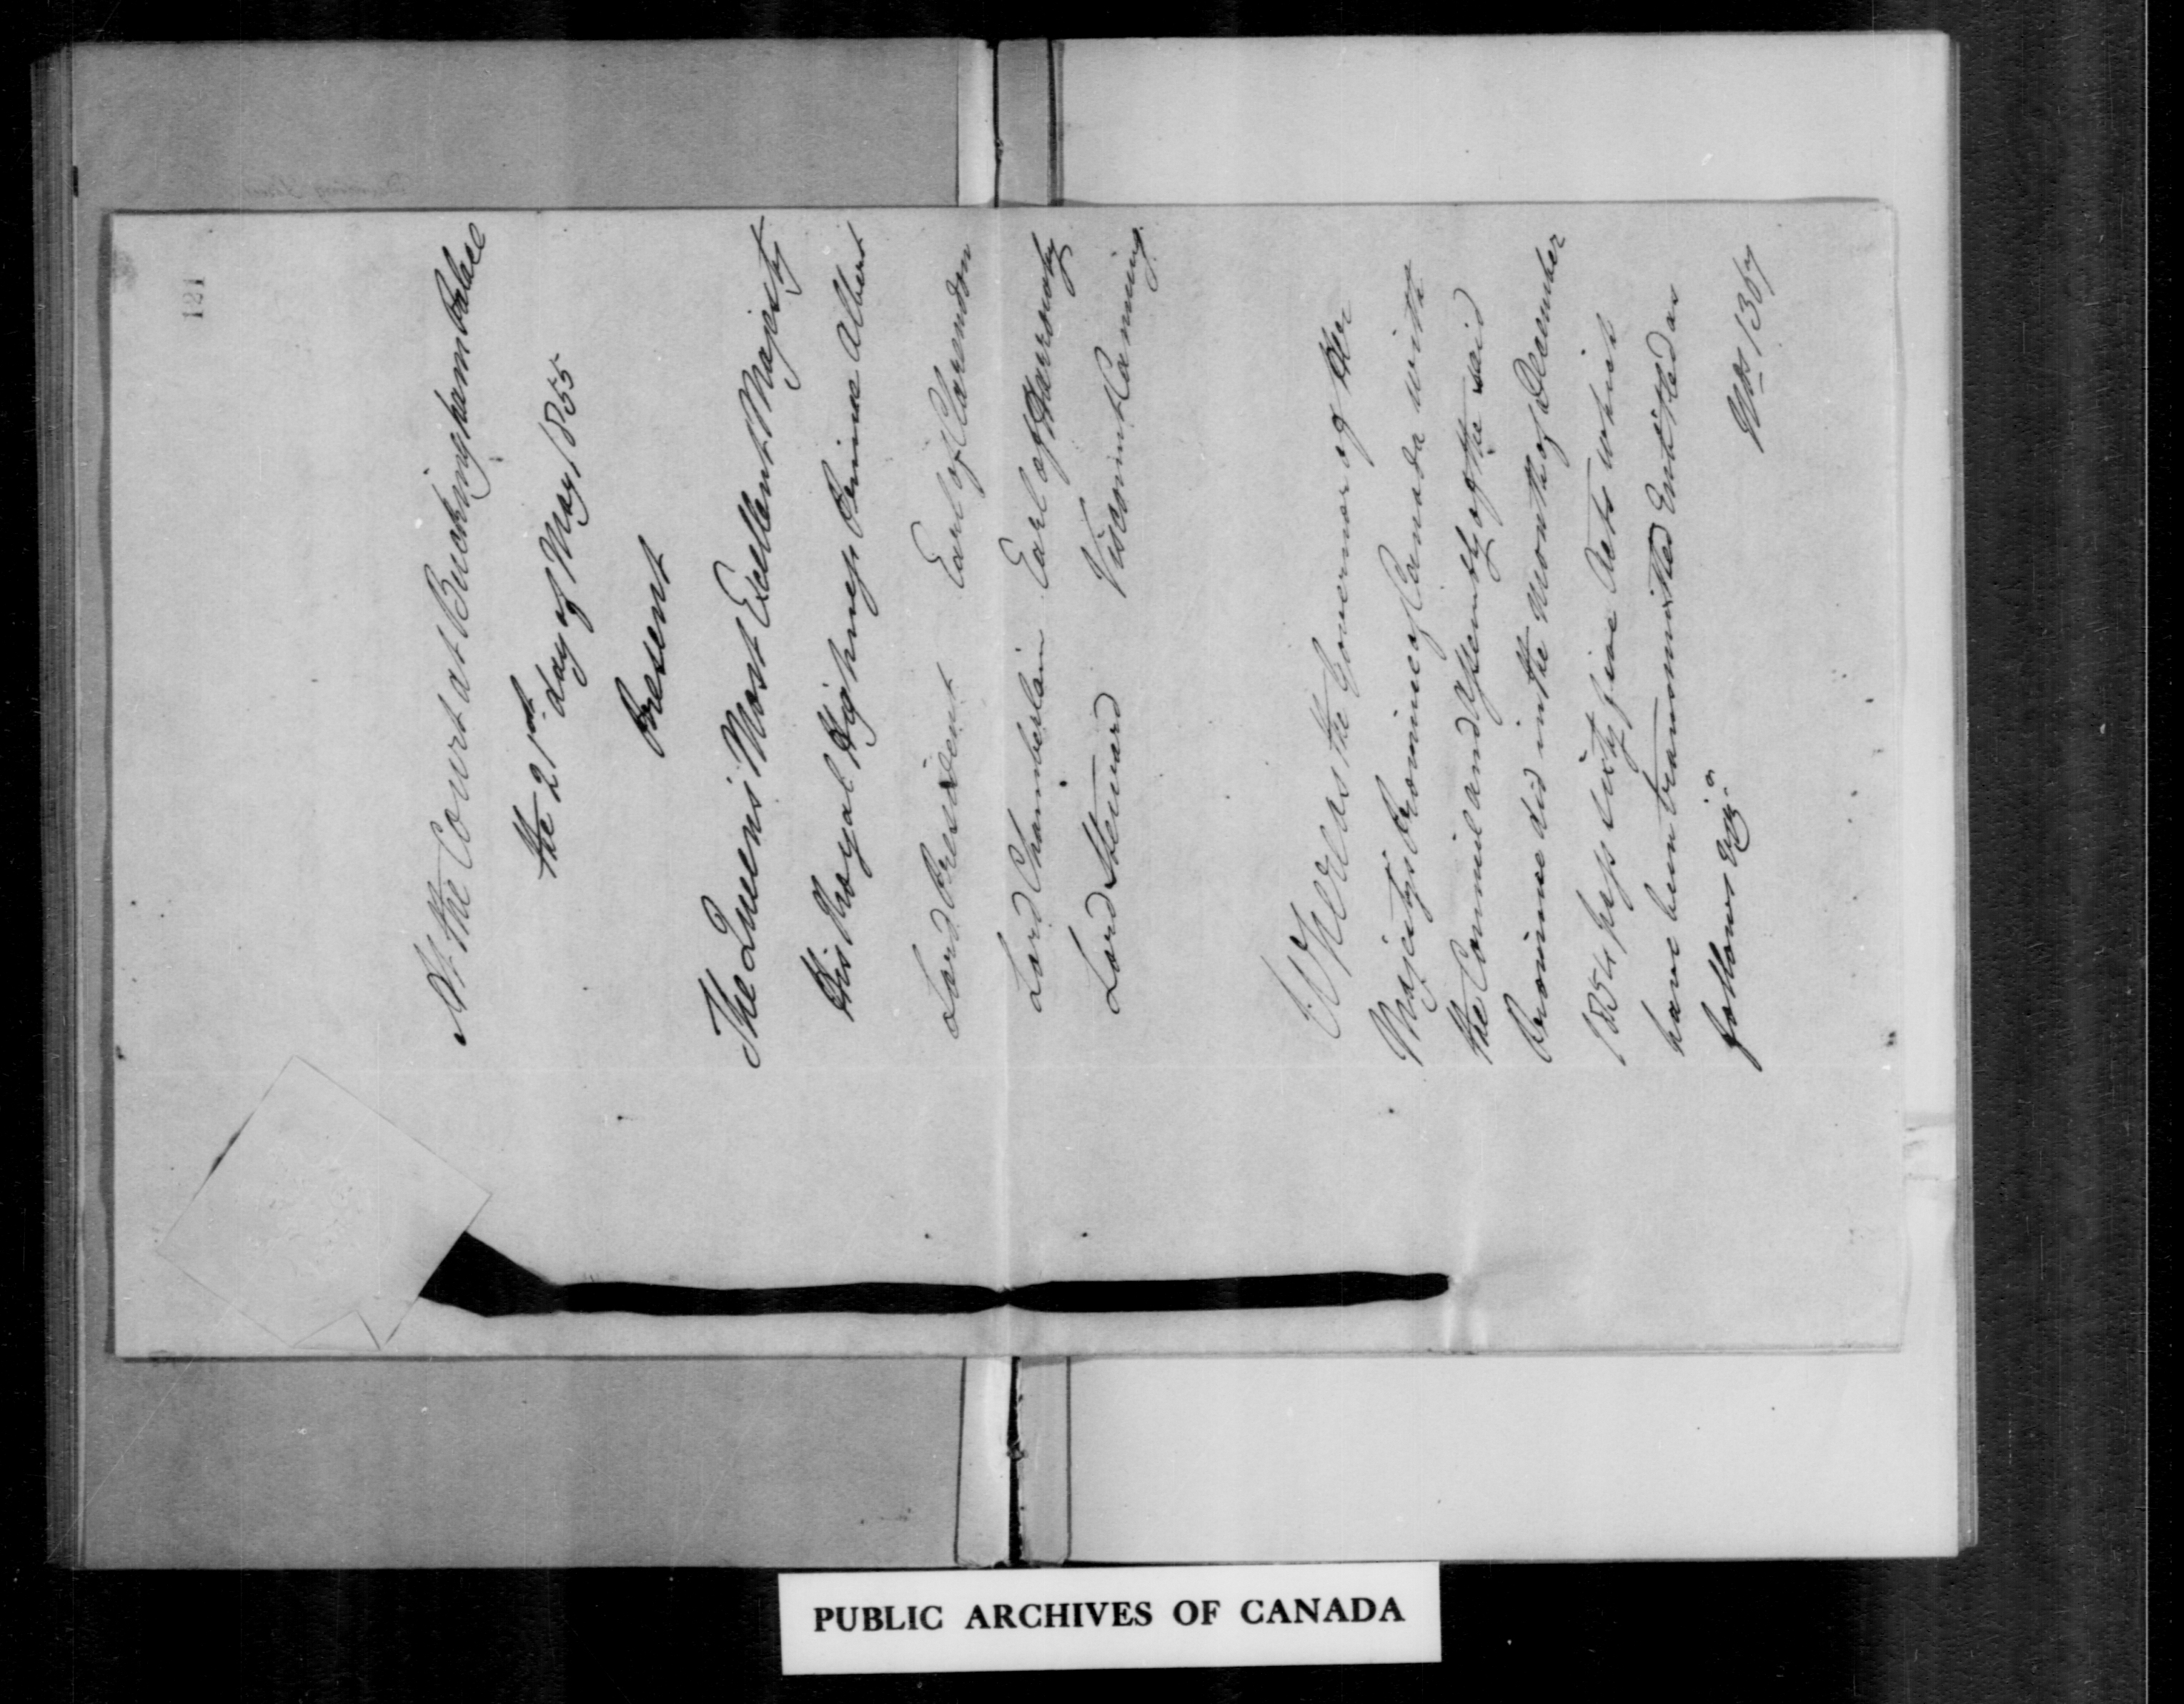 121
At the Court at Buckingham Palace
the 21st day of May 1855
Present
The Queen's Most Excellent Majesty
His Royal Highness Prince Albert
Lord President Earl of Clarendon
Lord Chamberlain Earl of Harrowby
Lord Steward Viscount Canning
Whereas the Governor of Her
Majesty's Province of Canada with
the Council and Assembly of the said
Province did in the Month of December
1854 pass sixty five Acts which
have been transmitted Entitled as
follows Viz:
No 1367
PUBLIC ARCHIVES OF CANADA